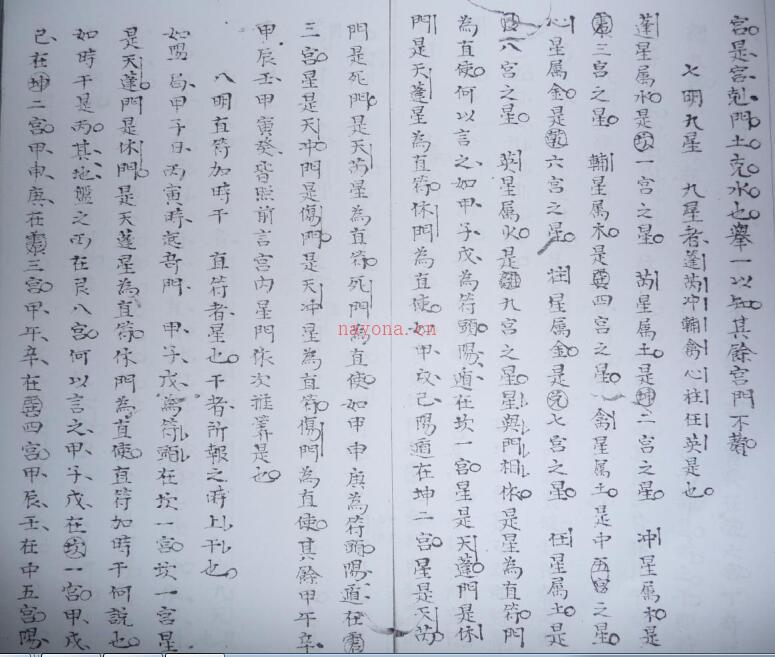 宮是宮剋門土克水也舉一以知其餘宮門不着
七明九星　九星者蓬芮冲輔禽心柱任英是也
蓬星属水是坎一宮之星　芮星属土是坤二宮之星　冲星属木是
震三宮之星　輔星属木是巽四宮之星　禽星属土是中五宮之星
心星属金是乾六宮之星　柱星属金是兌七宮之星　任星属土是
艮八宮之星　英星属火是離九宮之星星與門相依是星為直符門
為直使何以言之如甲子戊為符頭陽遁在坎一宮星是天蓬門是休
門是天蓬星為直符休門為直使如甲戌己陽遁在坤二宮星是天芮
門是死門是天芮星為直符死門為直使如甲申庚為符頭陽遁在震
三宮星是天冲門是傷門是天冲星為直符傷門為直使其餘甲午辛
甲辰壬甲寅癸皆照前言宮內星門依次推筭是也
八明直符加時干　直符者星也干者所報之時上干也
如陽局甲子日丙寅時起奇門　甲子戊為符頭在坎一宮坎一宮星
是天蓬門是休門是天蓬星為直符休門為直使直符加時干何說也
如時干是丙其地盤之丙在艮八宮何以言之甲子戊在坎一宮甲戌
己在坤二宮甲申庚在震三宮甲午辛在巽四宮甲辰壬在中五宮陽
nayona.cn